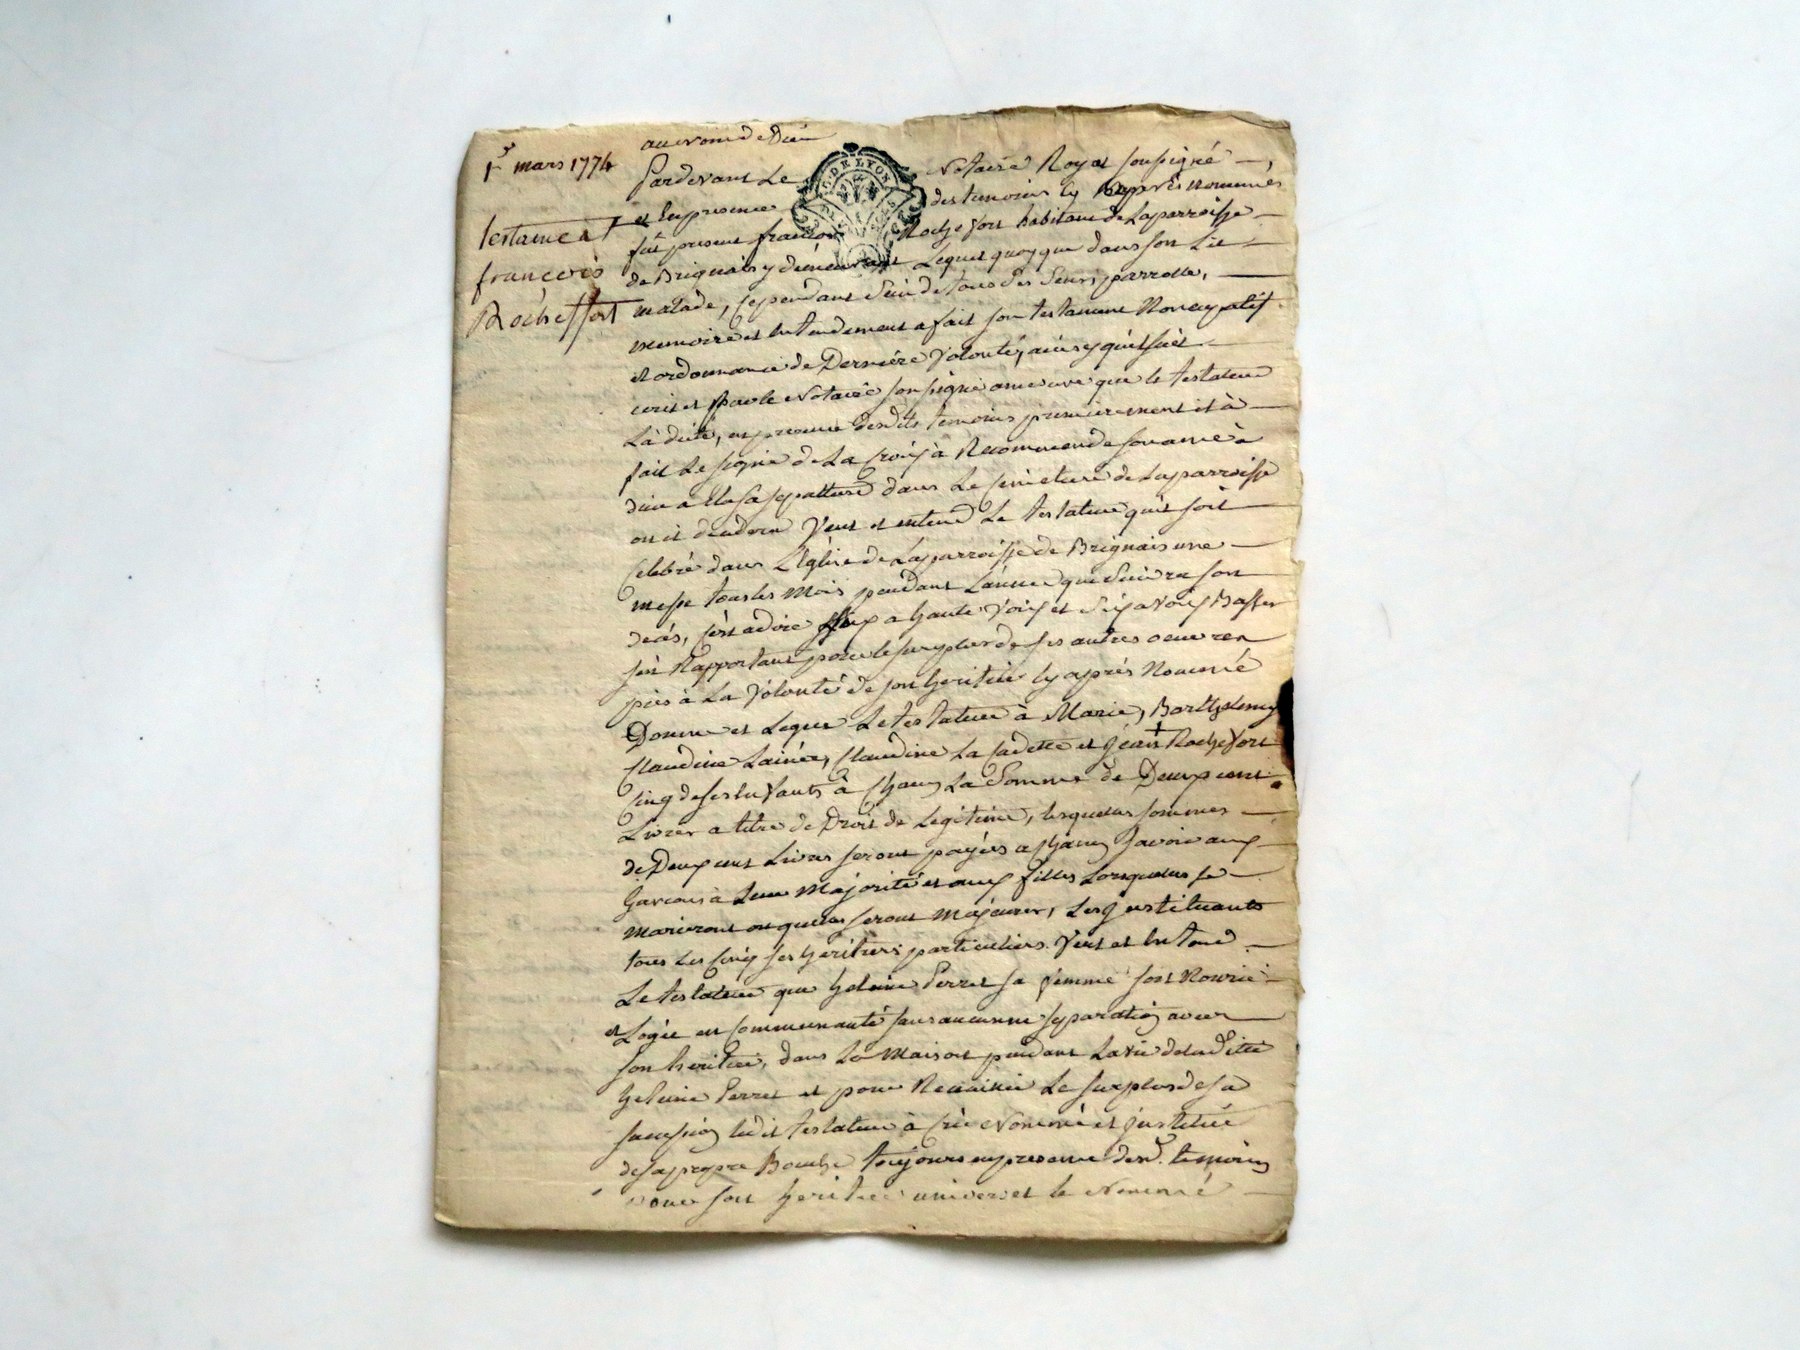 1r mars 1774
testament
francois
Rocheffort
au nom de Dieu
Pardevant Le Notaire Royal soussigné
et En presence des temoins cy apprès nommés
fut present francois Rochefort habitant de La parroisse
de Brignais y demeurant Lequel quoyque dans son Lit
malade, cependant Sain de tous ses Sens, parrolle,
memoire et Entendement a fait son testament Noncupatif
et ordonnance de Derniére Volonté, ainsy qu'il suit
ecrit par le Notaire soussigné amesure que le testateur
L'a dicté, en presence desdits temoins premierement il à
fait Le signe de La Croix à Recommendé son ame à
dieu a Elu sa sepulture dans Le Cimetiere de La parroisse
ou il decedera Veut et entend Le testateur qu'il soit
Celebré dans L'Eglise de La parroisse de Brignais une
messe tous les Mois pendant L'année que Suivra son
decés, C'est adire Six a haute Voix et Six a Voix Basse
s'en Rapportant pour le surplus de ses autres oeuvres
pies à La Volonté de son heritier Cy après Nommé
Donne et Legue Le testateur à Marie, Barthelemy
Claudine Lainée, Claudine La Cadette et Jean Rochefort
Cinq de ses Enfants à Chacun La Somme de Deux cent
Livres a titre de Droit de Legitime, lesquelles sommes
de Deux cent Livres seront payées a Chacun Savoir aux
Garcons à Leur Majorité et aux filles Lorsquelles se
marieront ou quelles seront Majeures, Les Jnstituants
tous Les Cinq ses heritiers particuliers. Veut et Entend
Le testateur que heleine Perret sa femme soit Nourrie
et Logée en Communauté sans aucunne separation avec
son heritier, dans La Maison pendant La vie de laditte
heleine Perret et pour Le surplus de sa
sucession ledit testateur à Crée Nommé et Jnstitué
de sa propre Bouche toujours en presence desd. temoins
pour son heritier universel le Nommé
G. DE LYON